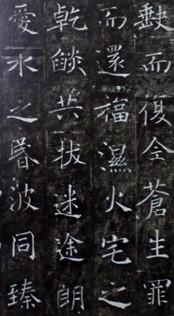 缺而復全蒼生罪
而還福濕火宅之
乾燄共拔迷途朗
愛水之昬波同臻